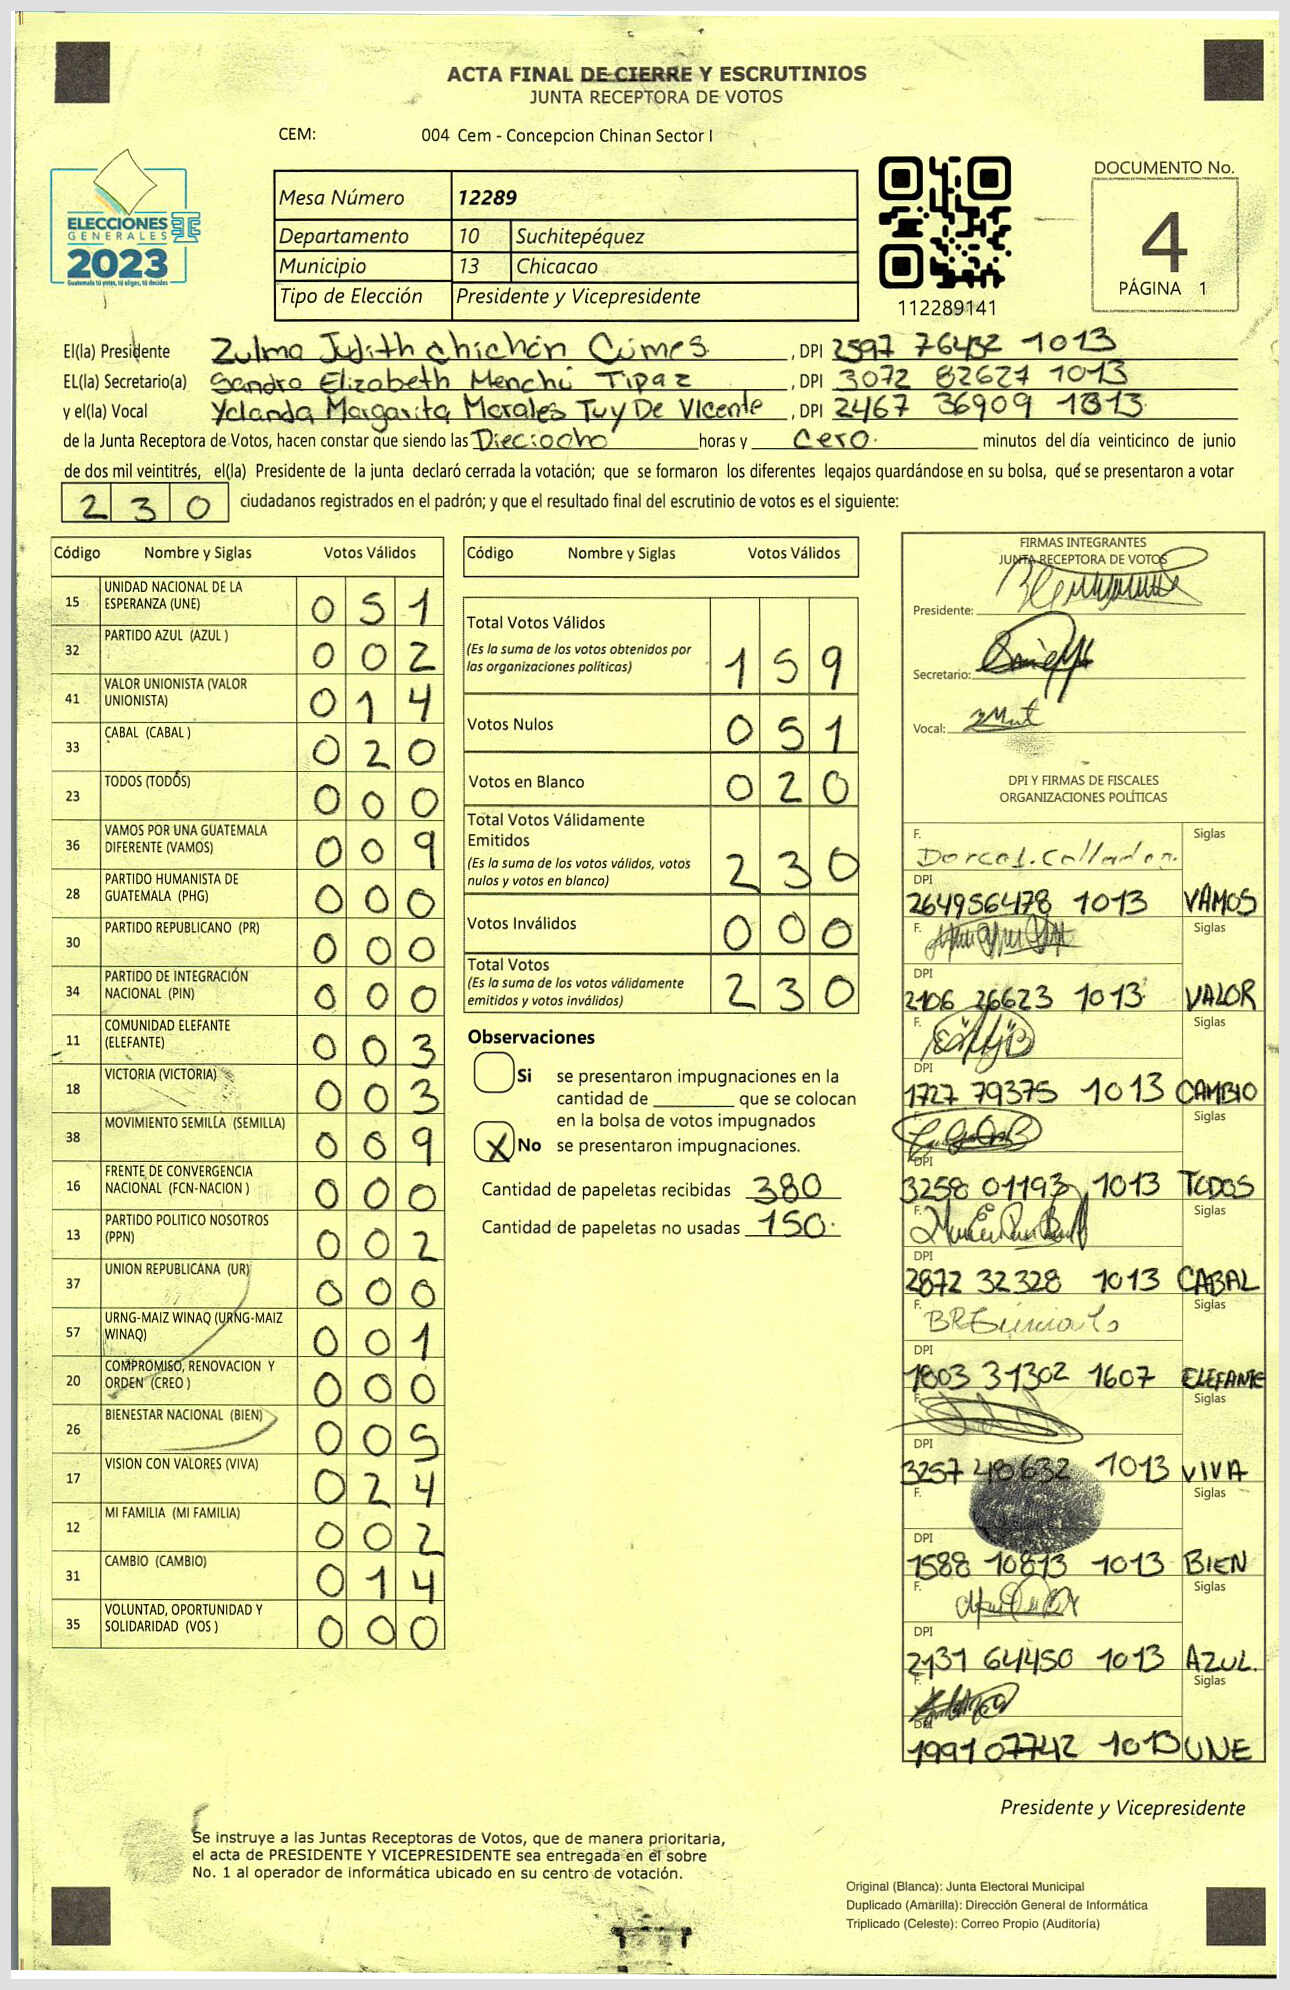 ACTA FINAL DE CIERRE Y ESCRUTINIOS
JUNTA RECEPTORA DE VOTOS
CEM: 004 Cem - Concepcion Chinan Sector I
ELECCIONES
GENERALES
2023
Guatemala tú votes, tú eliges, tú decides
Mesa Número 12289
Departamento 10 Suchitepéquez
Municipio 13 Chicacao
Tipo de Elección Presidente y Vicepresidente
112289141
DOCUMENTO No.
4
PÁGINA 1
El(la) Presidente Zulma Judith Chichón Cúmes , DPI 2597 76432 1013
EL(la) Secretario(a) Sandra Elizabeth Menchú Tipaz , DPI 3072 82627 1013
y el(la) Vocal Yolanda Margarita Morales Tuy De Vicente , DPI 2467 36909 1013
de la Junta Receptora de Votos, hacen constar que siendo las Dieciocho horas y Cero. minutos del día veinticinco de junio
de dos mil veintitrés, el(la) Presidente de la junta declaró cerrada la votación; que se formaron los diferentes legajos guardándose en su bolsa, que se presentaron a votar
230 ciudadanos registrados en el padrón; y que el resultado final del escrutinio de votos es el siguiente:
Código Nombre y Siglas Votos Válidos
15 UNIDAD NACIONAL DE LA ESPERANZA (UNE) 051
32 PARTIDO AZUL (AZUL ) 002
41 VALOR UNIONISTA (VALOR UNIONISTA) 014
33 CABAL (CABAL ) 020
23 TODOS (TODOS) 000
36 VAMOS POR UNA GUATEMALA DIFERENTE (VAMOS) 009
28 PARTIDO HUMANISTA DE GUATEMALA (PHG) 000
30 PARTIDO REPUBLICANO (PR) 000
34 PARTIDO DE INTEGRACIÓN NACIONAL (PIN) 000
11 COMUNIDAD ELEFANTE (ELEFANTE) 003
18 VICTORIA (VICTORIA) 003
38 MOVIMIENTO SEMILLA (SEMILLA) 009
16 FRENTE DE CONVERGENCIA NACIONAL (FCN-NACION ) 000
13 PARTIDO POLITICO NOSOTROS (PPN) 002
37 UNION REPUBLICANA (UR) 000
57 URNG-MAIZ WINAQ (URNG-MAIZ WINAQ) 001
20 COMPROMISO, RENOVACION Y ORDEN (CREO ) 000
26 BIENESTAR NACIONAL (BIEN) 005
17 VISION CON VALORES (VIVA) 024
12 MI FAMILIA (MI FAMILIA) 002
31 CAMBIO (CAMBIO) 014
35 VOLUNTAD, OPORTUNIDAD Y SOLIDARIDAD (VOS ) 000
Código Nombre y Siglas Votos Válidos
Total Votos Válidos
(Es la suma de los votos obtenidos por
las organizaciones políticas) 159
Votos Nulos 051
Votos en Blanco 020
Total Votos Válidamente
Emitidos
(Es la suma de los votos válidos, votos
nulos y votos en blanco) 230
Votos Inválidos 000
Total Votos
(Es la suma de los votos válidamente
emitidos y votos inválidos) 230
Observaciones
Si se presentaron impugnaciones en la
cantidad de ________ que se colocan
en la bolsa de votos impugnados
X No se presentaron impugnaciones.
Cantidad de papeletas recibidas 380
Cantidad de papeletas no usadas 150.
FIRMAS INTEGRANTES
JUNTA RECEPTORA DE VOTOS
Presidente:
Secretario:
Vocal:
DPI Y FIRMAS DE FISCALES
ORGANIZACIONES POLÍTICAS
F. Siglas
DPI
264956478 1013 VAMOS
F. Siglas
DPI
2106 26623 1013 VALOR
F. Siglas
DPI
1727 79375 1013 CAMBIO
Siglas
DPI
3258 01193 1013 TODOS
F. Siglas
DPI
2872 32328 1013 CABAL
F. Siglas
DPI
1803 31302 1607 ELEFANTE
F. Siglas
DPI
3257 1013 VIVA
F. Siglas
DPI
1588 10813 1013 BIEN
F. Siglas
DPI
2131 64450 1013 AZUL.
F. Siglas
DPI
1991 07742 1013 UNE
Presidente y Vicepresidente
Se instruye a las Juntas Receptoras de Votos, que de manera prioritaria,
el acta de PRESIDENTE Y VICEPRESIDENTE sea entregada en el sobre
No. 1 al operador de informática ubicado en su centro de votación.
Original (Blanca): Junta Electoral Municipal
Duplicado (Amarilla): Dirección General de Informática
Triplicado (Celeste): Correo Propio (Auditoría)